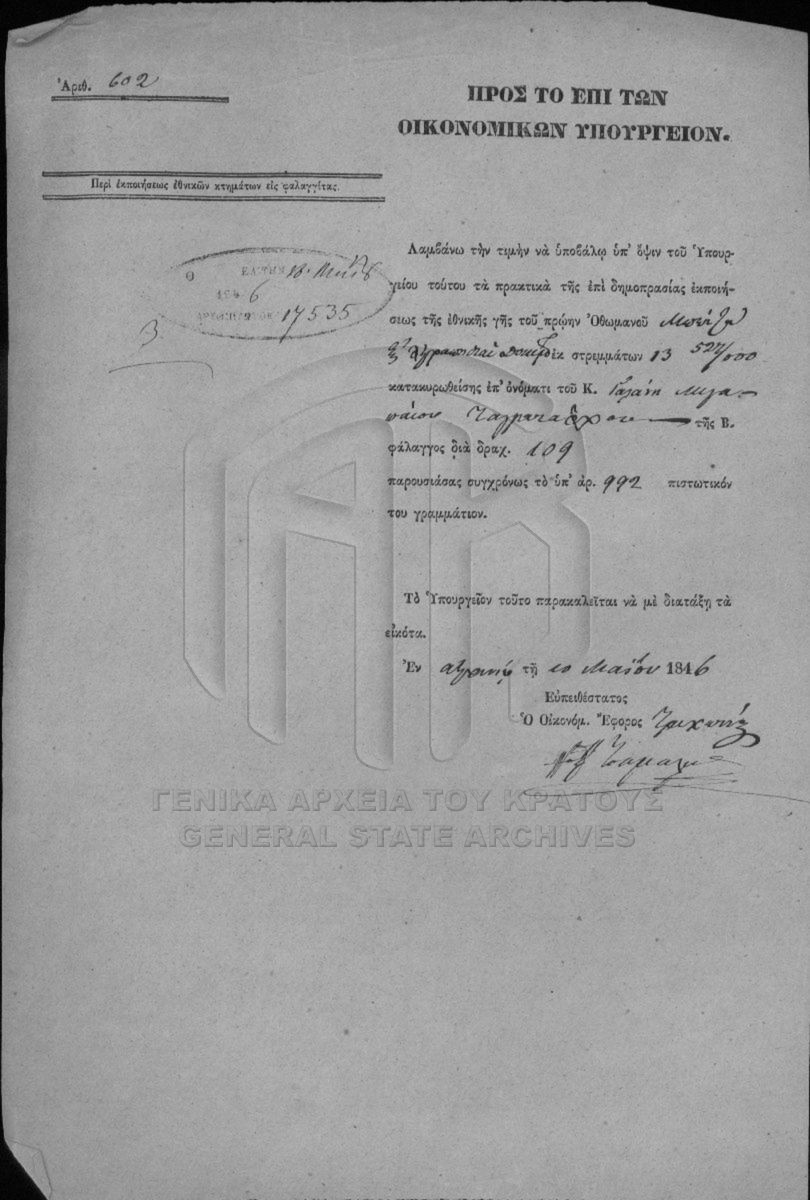 Ἀριθ. 602
ΠΡΟΣ ΤΟ ΕΠΙ ΤΩΝ
ΟΙΚΟΝΟΜΙΚΩΝ ΥΠΟΥΡΓΕΙΟΝ.
Περὶ ἐκποιήσεως ἐθνικῶν κτημάτων εἰς φαλαγγίτας.
17535
3
Λαμβάνω τὴν τιμὴν νὰ ὑποβάλω ὑπ' ὄψιν τοῦ Ὑπουρ-
γείου τούτου τὰ πρακτικὰ τῆς ἐπὶ δημοπρασίας ἐκποιή-
σεως τῆς ἐθνικῆς γῆς τοῦ πρώην Ὀθωμανοῦ
ἐκ στρεμμάτων 13 527/000
κατακυρωθείσης ἐπ' ὀνόματι τοῦ Κ.
τῆς Β.
φάλαγγος διὰ δραχ. 109
παρουσιάσας συγχρόνως τὸ ὑπ' ἀρ. 992 πιστωτικόν
του γραμμάτιον.
Τὸ Ὑπουργεῖον τοῦτο παρακαλεῖται νὰ μὲ διατάξῃ τὰ
εἰκότα.
Ἐν τῇ 10 Μαΐου 1846
Εὐπειθέστατος
Ὁ Οἰκονόμ. Ἔφορος
ΓΕΝΙΚΑ ΑΡΧΕΙΑ ΤΟΥ ΚΡΑΤΟΥΣ
GENERAL STATE ARCHIVES